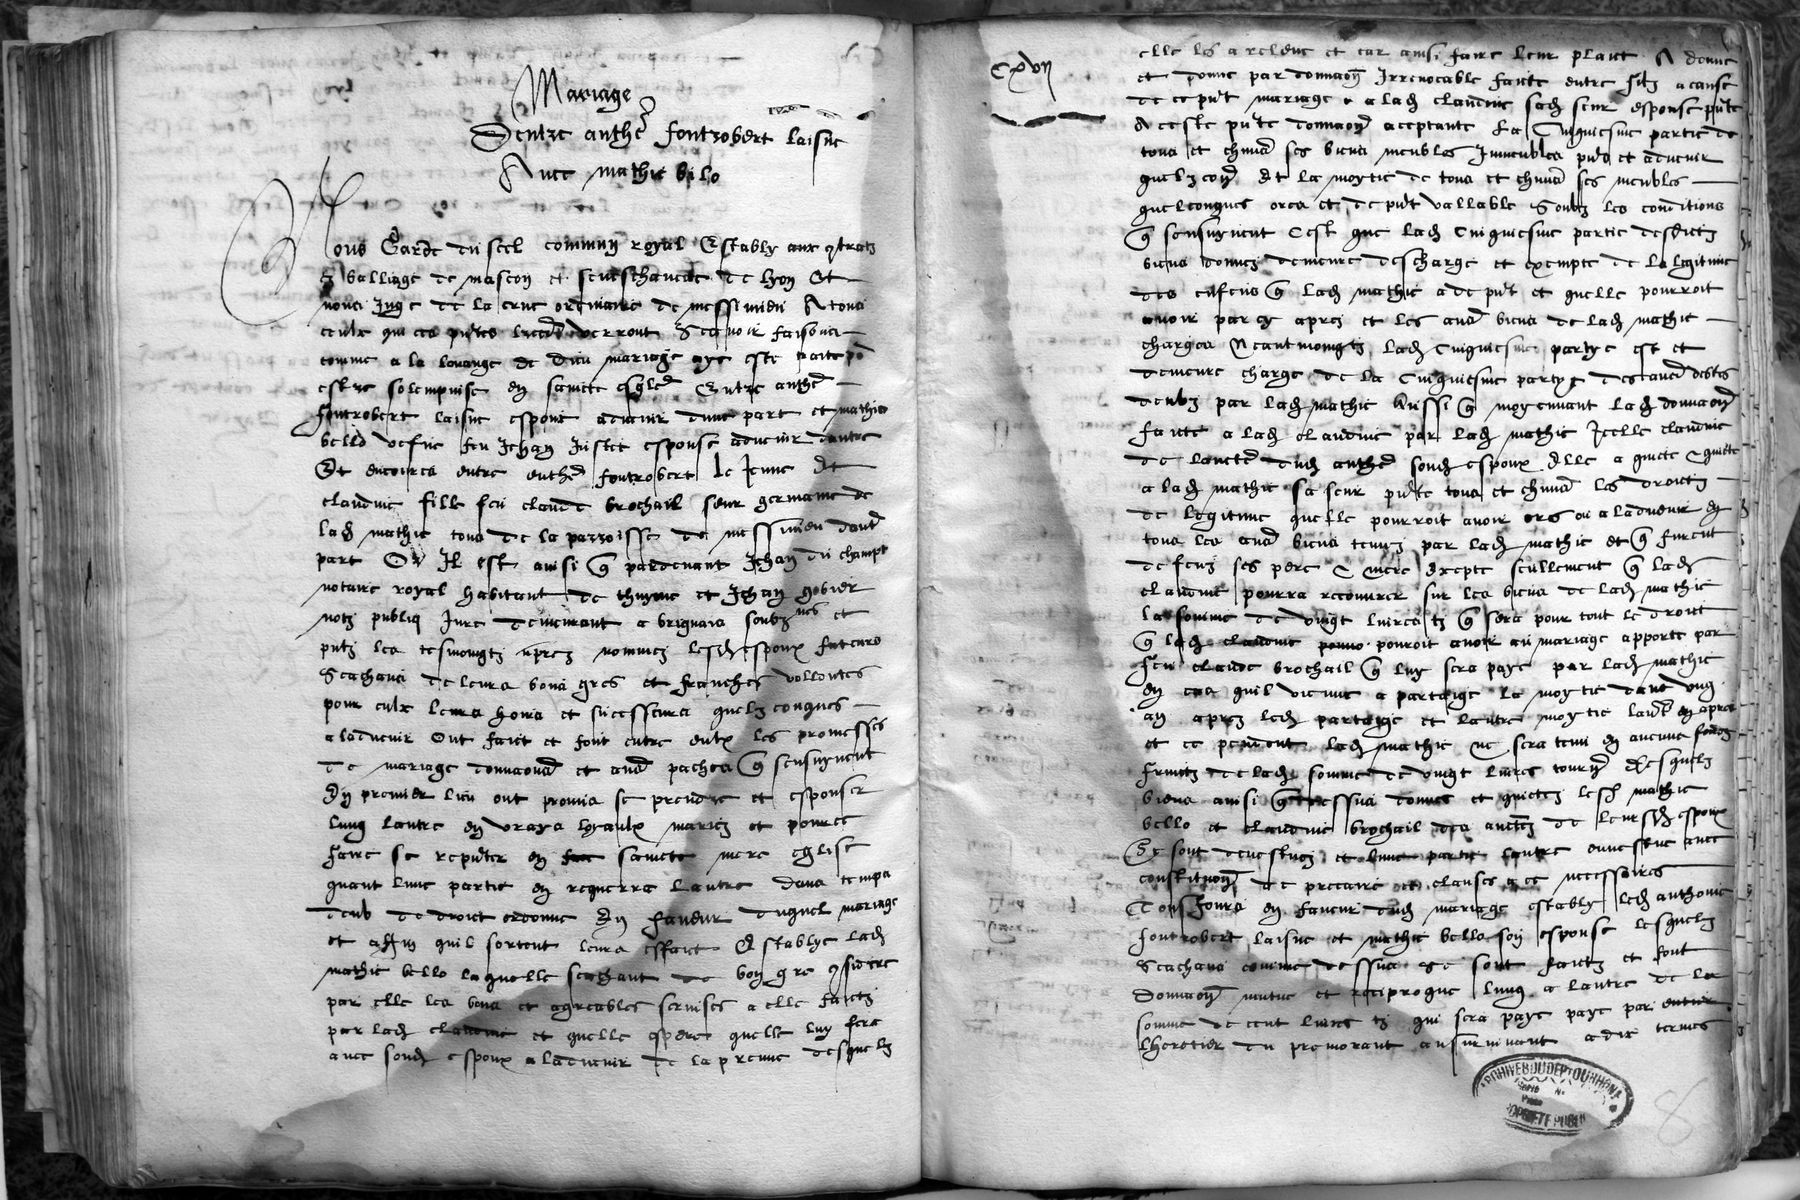 Mariage
Dentre anthe fontrobert laisne
Avec mathie bilo
Nous Garde du seel commun royal Estably aux contratz
es balliage de mascon et seneschaucee de lyon Et
nous Juge de la ordinaire de messimieu A tous
ceulx qui ces pntes lectres verront Scavoir faisons
comme a la louange de dieu mariage aye este traite po
estre solempnise en saincte esglise Entre anthe
fontrobert laisne espoux advenir dune part et mathie
bello vefve feu Jehan espouse advenir dautre
Et encores entre anthe fontrobert le Jeune Et
claudine fille feu claude brochail seur germaine de
lad mathie tous de la parroisse de messimieu daultre
part Or Il est ainsi que pardevant Jehan du champt
notaire royal habitant de et Jehan gobier
notr publiq Jure demeurant a brignais soubznes et
pntz les tesmoingtz apres nommez lesd espoux futeurs
Scachans de leurs bons gres et franches vollontes
pour eulx leurs hoirs et successeurs quelzconques
aladvenir Ont faict et font entre eulx les promesses
de mariage donnaons et aultres paches que sensuyvent
En premier lieu ont promis se prendre et espouser
lung lautre en vrays lyaulx mariez et pource
faire se repnter en saincte mere eglise
quant lune partie en requerra lautre dans temps
deub de droict ordonne En faveur duquel mariage
et affin quil sortent leurs effaict Establye lad
mathie bello laquelle scachant de bon gre considere
par elle les bons et agreables services a elle faictz
par lad claudine et quelle espere quelle luy fera
avec sond espoux aladvenir de la preuve desquelz
cxvii
elle les a releve et car ainsi faire leur plaict A donne
et donne par donnaon Irrevocable faicte entre filz a cause
de ce pnt mariage a lad claudine sad seur espouse pnte
A ceste pnte donnaon acceptante La Cinquiesme partie de
tous et chuns ses biens meubles Immeubles pns et advenir
quelzcon Et la moytie de tous et chuns ses meubles
quelconques ores et de pnt vallable Soubz les conditions
que sensuyvent Cest que lad Cinquiesme partie desdictz
biens donnez demeure descharge et exempte de la legitime
des enfens que lad mathie a de pnt et quelle pourroit
avoir par cy apres et les aultres biens de lad mathie
charges Neantmoingtz lad Cinquiesme partye est et
demeure charge de la Cinquiesme partye des aultres debtes
deubz par lad mathie Aussi que moyennant lad donnaon
faicte a lad claudine par lad mathie Icelle claudine
de lauctte dud anthe sond espoux Elle a quicte & quicte
a lad mathie sa seur pnte tous et chuns les droictz
de legitime quelle pourroit avoir ores ou aladvenir en
tous les aultres biens tenuz par lad mathie et que furent
de feuz ses pere & mere Excepte seullement que lad
claudine pourra recouvrer sur les biens de lad mathie
la somme de vingt livres tz que sera pour tout le droict
que lad claudine pouroit avoir au mariage apporte par
feu claude brochail que luy sera paye par lad mathie
en cas quil vienne a partaige la moytie dans ung
an apres led partaige et lautre moytie laultre en apres
et ce pendent lad mathie ne sera tenu en aucune
fruictz de lad somme de vingt livres tourn Desquelz
biens ainsi que dessus donnes et quictez lesd mathie
bello et claudine brochail des auctez de leursd espoux
Se sont devestuz et lune partie lautre avec
constituon de precaire et clauses a ce necessaires
Tousjours en faveur dud mariage estably led anthoine
fontrobert laisne et mathie bello son espouse lesquelz
Scachans comme dessus se sont faictz et font
donnaon mutue et reciproque lung a lautre de la
somme de cent livres tz qui sera paye paye par
lheretier du premorant au survivant a dix termes
ARCHIVES DU DEPT DU RHONE
PROPRIETE PUBLIQUE
8